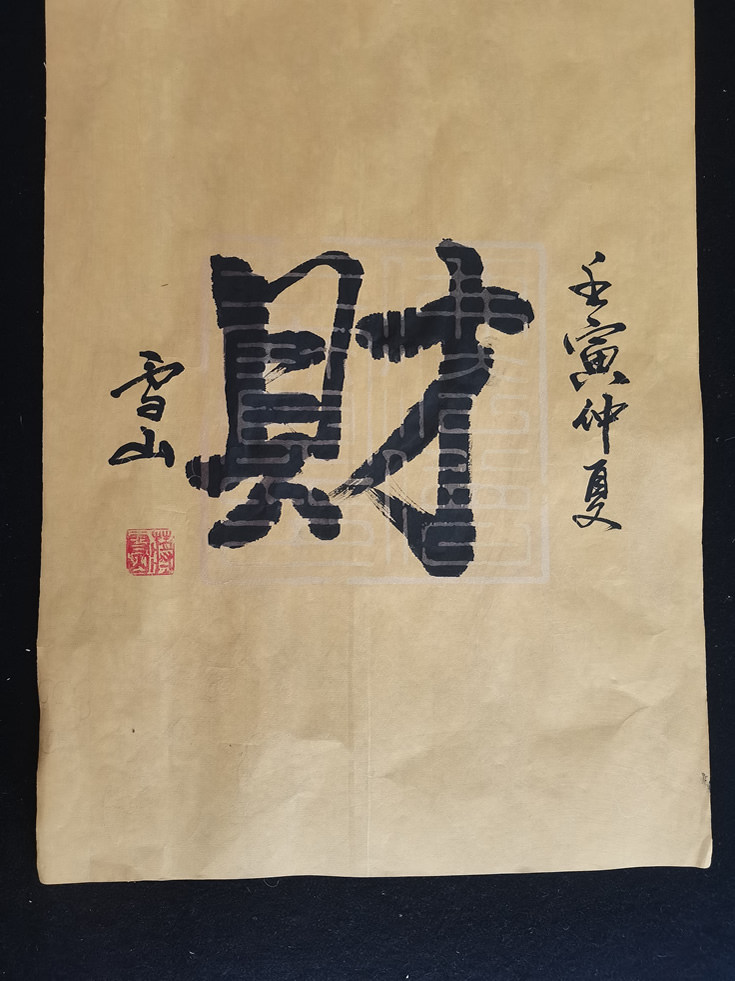 壬寅仲夏
財
雪山